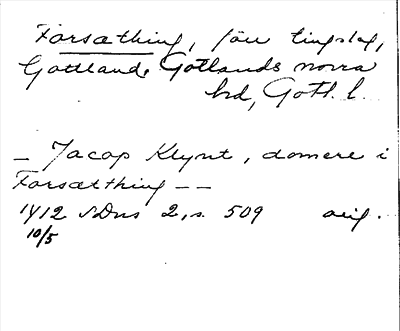 Forsæthing, förr tingslag,
Gottland. Gotlands norra
hd, Gotl. l.
_ Jacop Klynt, domere i
Forsætthing _ _
1412 SDns 2, s. 509 orig.
10/5